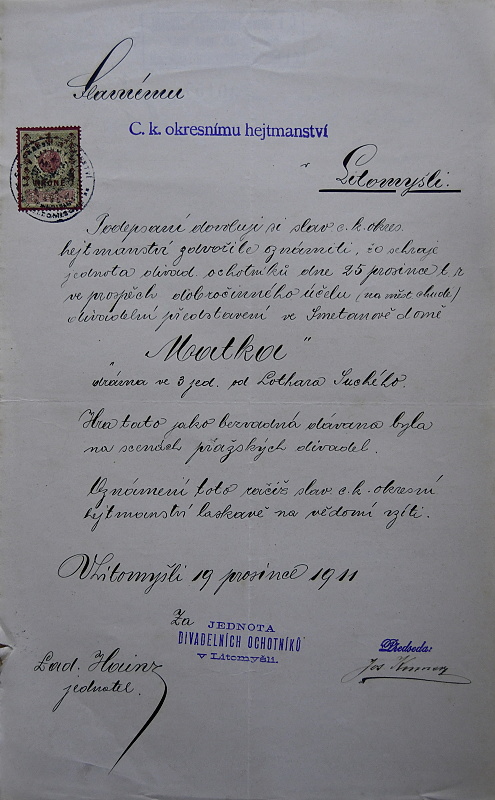 Slavnému
C. k. okresnímu hejtmanství
v
Litomyšli.
Podepsaní dovolují si slav. c. k. okres.
hejtmanství zdvořile oznámiti, že sehraje
jednota divad. ochotníků dne 25 prosince t. r
ve prospěch dobročinného účelu (na míst. chudé)
divadelní představení ve Smetanově domě
„Matka"
dráma ve 3 jed. od Lothara Suchého.
Hra tato jako bezvadná dávána byla
na scenách pražských divadel.
Oznámení toto račiž slav. c. k. okresní
hejtmanství laskavě na vědomí vzíti.
V Litomyšli 19 prosince 1911
Za JEDNOTA
DIVADELNÍCH OCHOTNÍKŮ
v Litomyšli.
Předseda:
Lad. Hainz
jednatel.
Jos